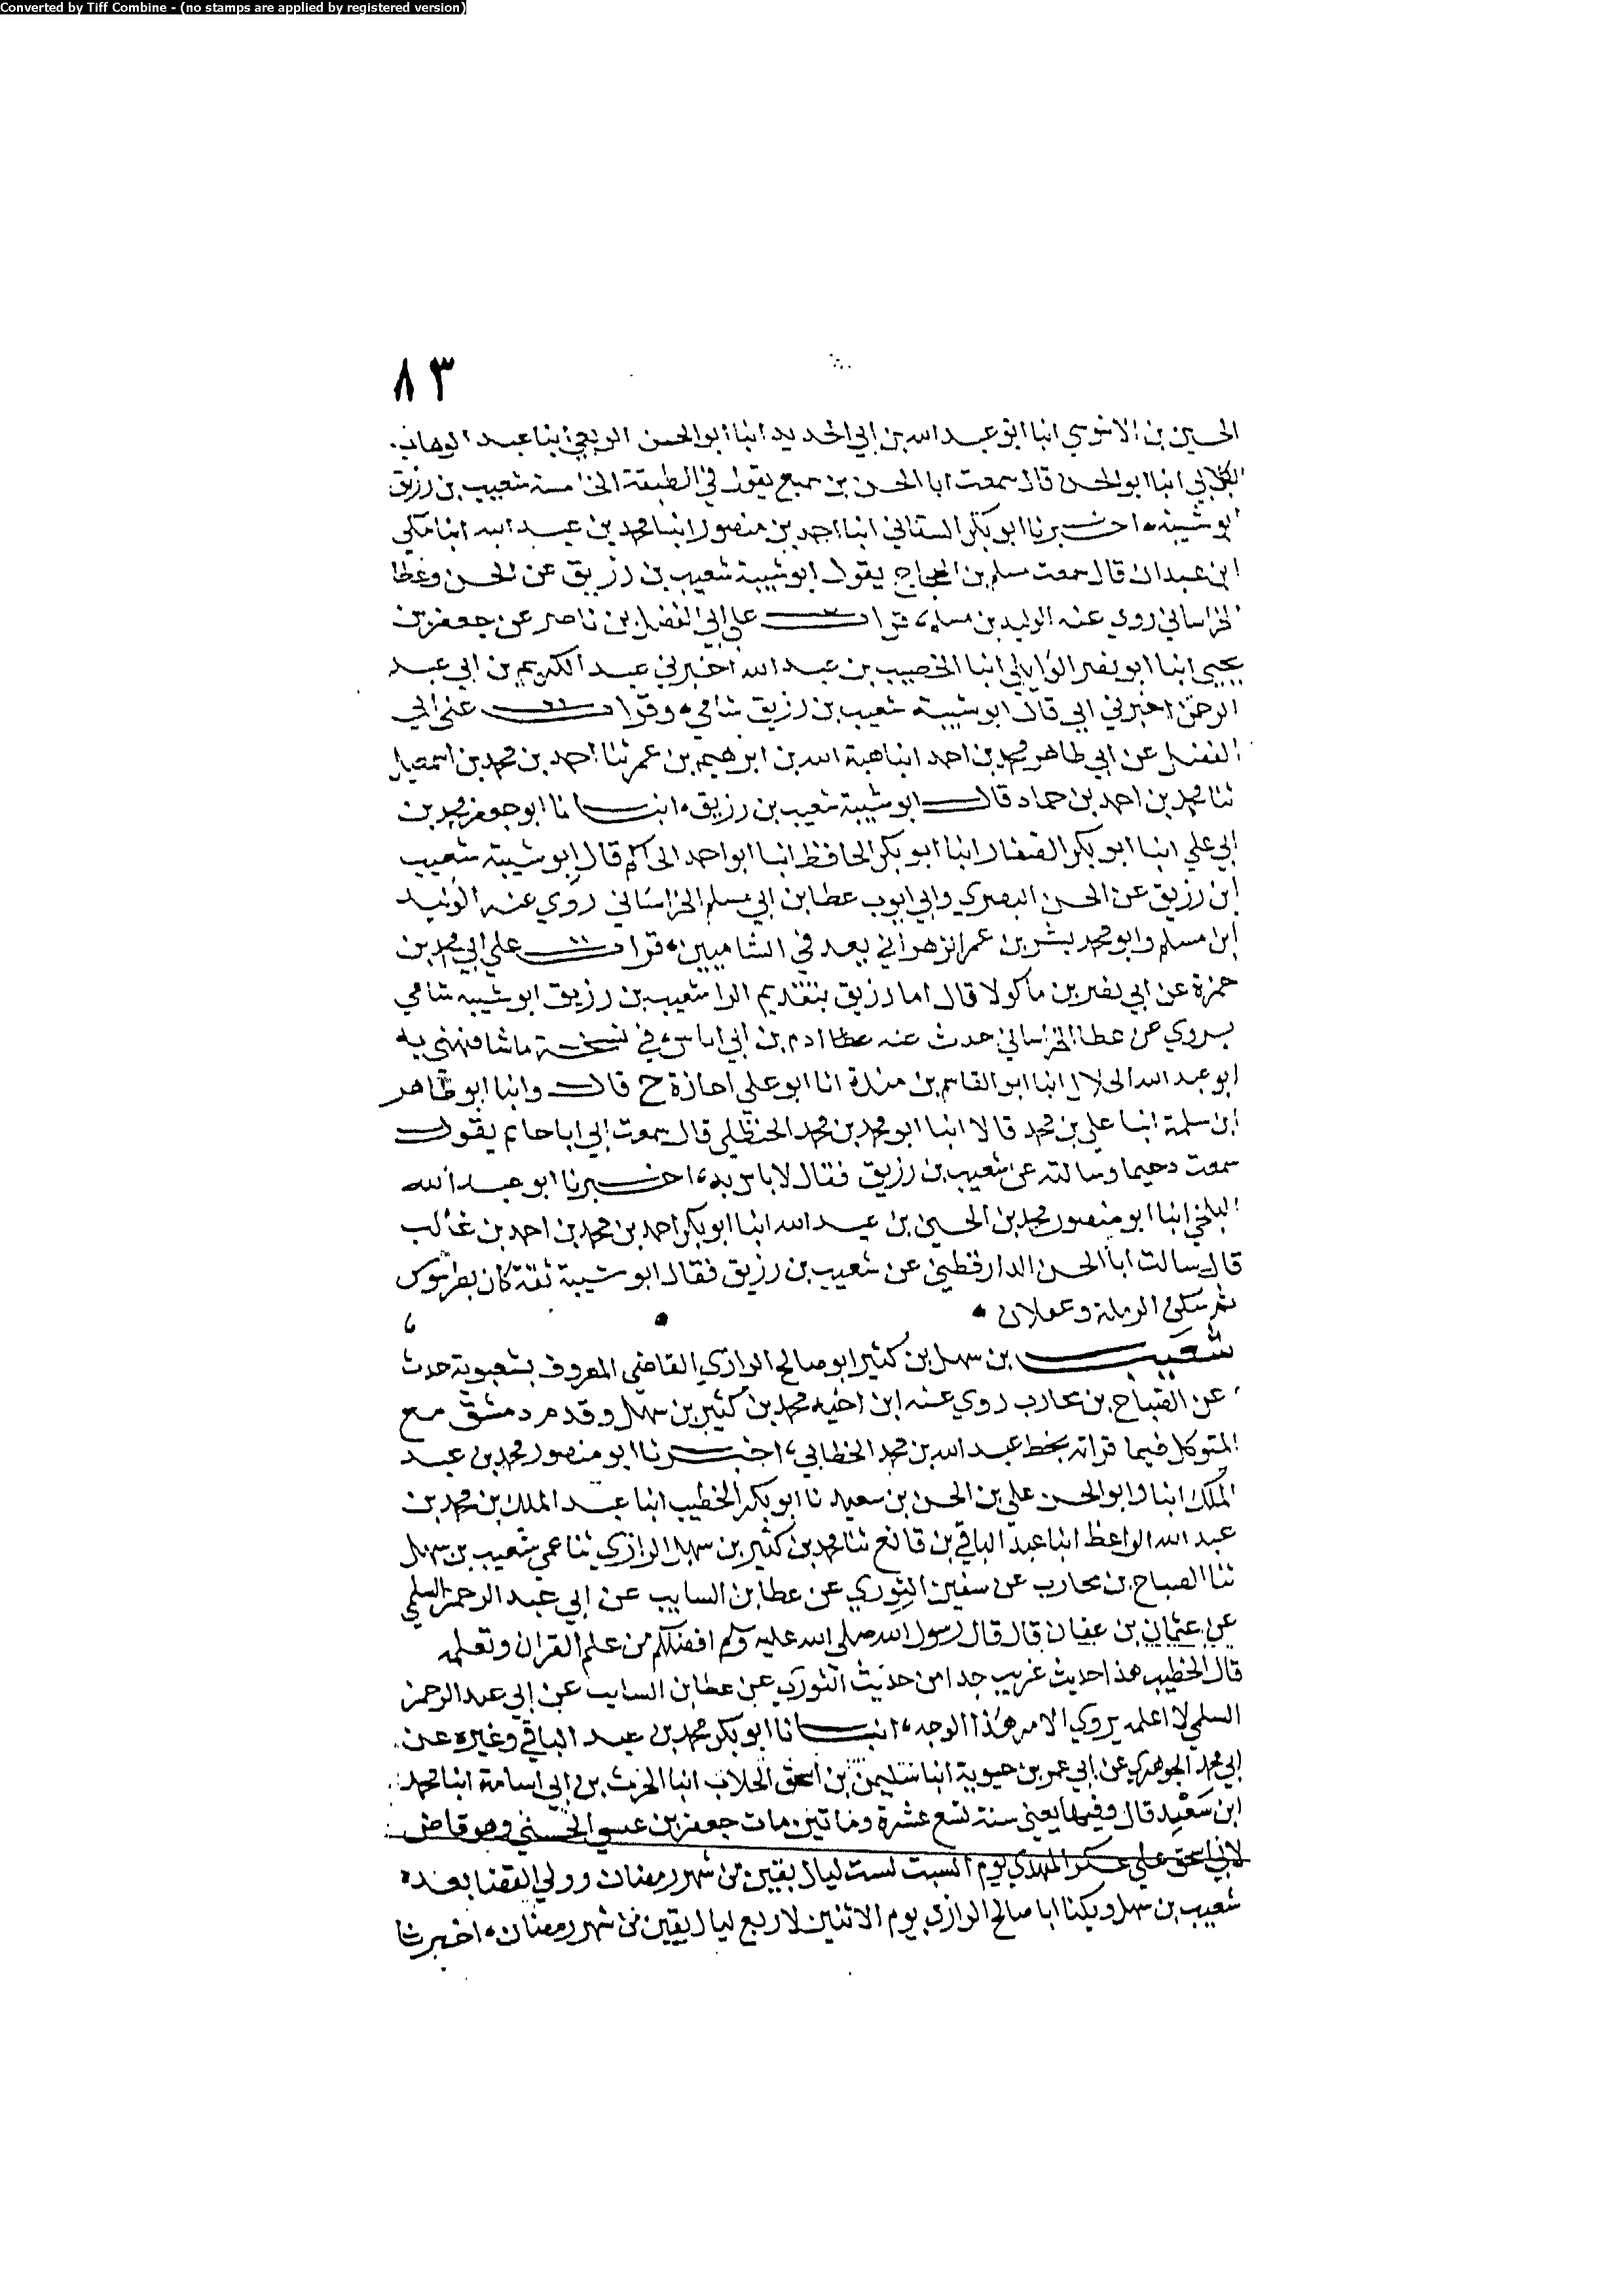 Converted by Tiff Combine - (no stamps are applied by registered version)
٨٣
الحسين بن الابنوسي انبا ابو عبد الله بن ابي الحديد انبا ابو الحسن الربعي انبا عبد الوهاب
الكلابي انبا ابو الحسن قال سمعت ابا الحسن بن سميع يقول في الطبقة الخامسة شعيب بن رزيق
ابو شيبة اخبرنا ابو بكر الشقاني انبا احمد بن منصور انبا محمد بن عبد الله انبا مكي
ابن عبدان قال سمعت مسلم بن الحجاج يقول ابو شيبة شعيب بن رزيق عن الحسن وعطا
الخراساني روى عنه الوليد بن مسلم، قرات على ابي الفضل بن ناصر عن جعفر بن
يحيى انبا ابو نصر الوايلي انبا الخصيب بن عبد الله اخبرني عبد الكريم بن ابي عبد
الرحمن اخبرني ابي قال ابو شيبة شعيب بن رزيق شامي وقرات على ابي
الفضل عن ابي طاهر محمد بن احمد انبا هبة الله بن ابرهيم بن عمر ثنا احمد بن محمد بن اسمعيل
ثنا محمد بن احمد بن حماد قال ابو شيبة شعيب بن رزيق، انبانا ابو جعفر محمد بن
ابي علي انبا ابو بكر الصفار انبا ابو بكر الحافظ انبا ابو احمد الحاكم قال ابو شيبة شعيب
ابن رزيق عن الحسن البصري وابي ايوب عطا بن ابي مسلم الخراساني روي عنه الوليد
ابن مسلم وابو محمد بشر بن عمر الزهراني يعد في الشاميين قرات على ابي محمد بن
حمزة عن ابي نصر بن ماكولا قال اما رزيق بتقديم الرا شعيب بن رزيق ابو شيبه شامي
يروي عن عطا الخراساني حدث عنه عطا ادم بن ابي اياس، في نسخة ما شافهني به
ابو عبد الله الخلال انبا ابو القاسم بن مندة انا ابو علي اجازة ح قال وانبا ابو طاهر
ابن سلمة انبا علي بن محمد قالا انبا ابو محمد بن محمد الحنظلي قال سمعت ابي ابا حاتم يقول
سمعت دحيما وسالته عن شعيب بن رزيق فقال لا باس به، اخبرنا ابو عبد الله
البلخي انبا ابو منصور محمد بن الحسين بن عبد الله انبا ابو بكر احمد بن محمد بن احمد بن غالب
قال سالت ابا الحسن الدارقطني عن شعيب بن رزيق فقال ابو شيبة ثقة كان بطرسوس
ثم سكن الرملة وعسقلان
شعيب بن سهل بن كثير ابو صالح الرازي القاضي المعروف بشعبوية حدث
عن الصباح بن محارب روي عنه ابن اخيه محمد بن كثير بن سهل وقدم دمشق مع
المتوكل فيما قراته بخط عبد الله بن محمد الخطابي، اخبرنا ابو منصور محمد بن عبد
الملك انبا وابو الحسن علي بن الحسن بن سعيد نا ابو بكر الخطيب انبا عبد الملك بن محمد بن
عبد الله الواعظ انبا عبد الباقي بن قانع ثنا محمد بن كثير بن سهل الرازي ثنا عمي شعيب بن سهل
ثنا الصباح بن محارب عن سفين الثوري عن عطا بن السايب عن ابي عبد الرحمن السلمي
عن عثمان بن عفان قال قال رسول الله صلى الله عليه وسلم افضلكم من علم القران وتعلمه
قال الخطيب هذا حديث غريب جدا من حديث الثوري عن عطا بن السايب عن ابي عبد الرحمن
السلمي لا اعلمه يروي الا من هذا الوجه، انبانا ابو بكر محمد بن عبد الباقي وغيره عن
ابي محمد الجوهري عن ابي عمر بن حيوية انبا سليمن بن اسحق الجلاب انبا الحرث بن ابي اسامة انبا محمد
ابن سعيد قال وفيها يعني سنة تسع عشرة وماتين مات جعفر بن عيسي الحسني وهو قاض
لابي اسحق علي عسكر المهدي يوم السبت لست ليال بقين من شهر رمضان وولي القضا بعده
شعيب بن سهل ويكنا ابا صالح الرازي يوم الاثنين لاربع ليال بقين من شهر رمضان، اخبرنا